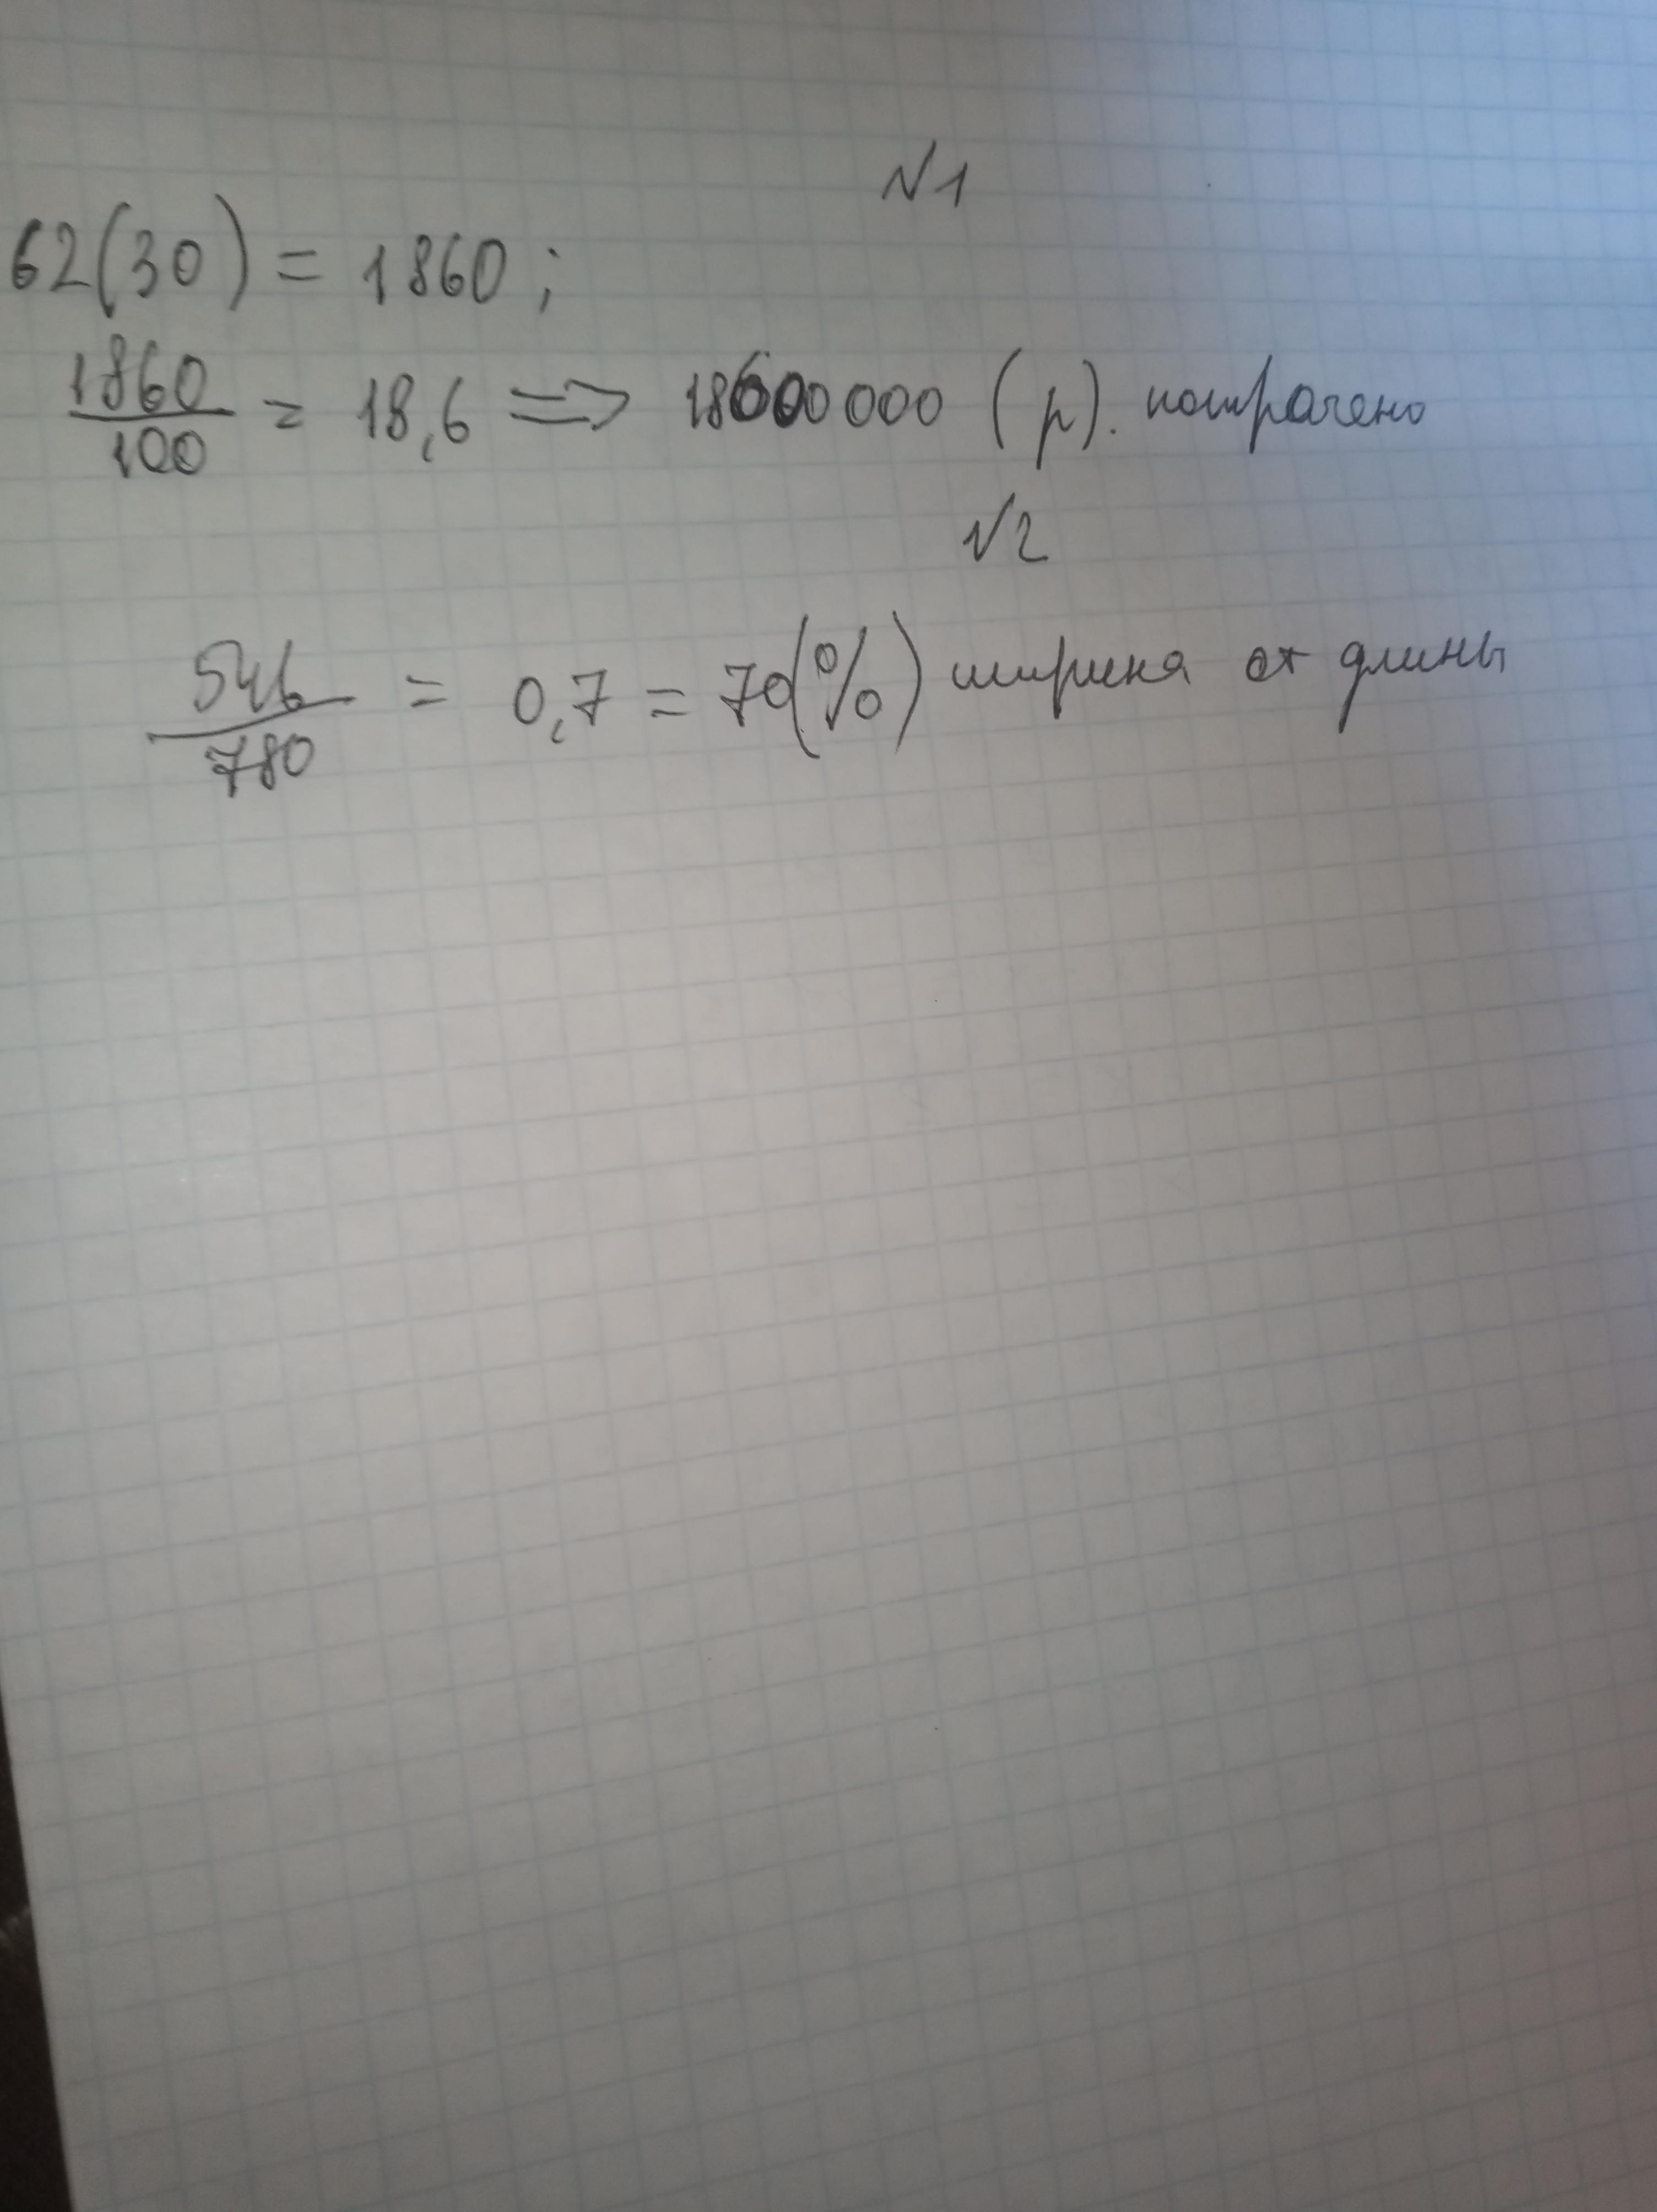 №1
62(30) = 1860;
1860/100 = 18,6 => 18600000 (р). потрачено
№2
546/780 = 0,7 = 70(%) ширина от длины